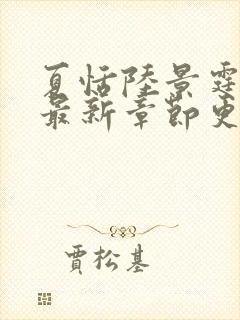 夏恬陸景霆
最新章節更
賈松基